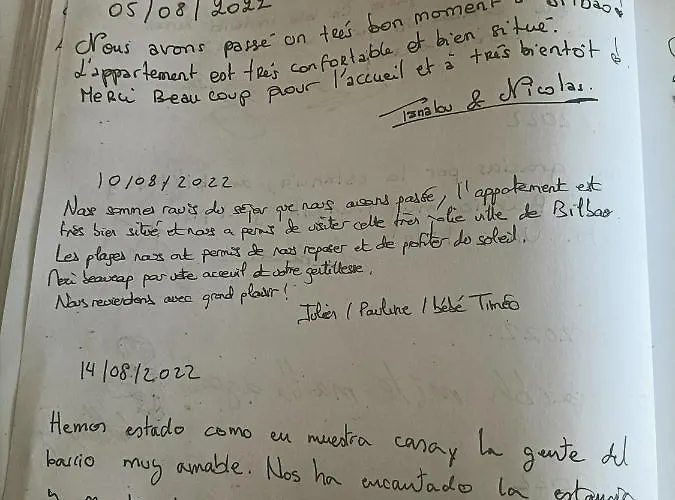 05/08/2022
Nous avons passé on treś bon moment à Bilbao!
L'appartement est treś confortable et bien situé.
Merci Beaucoup pour l'accueil et à treś bientôt !
& Nicolas.
10/08/2022
Nous sommes ravis du séjour que nous avons passé, l'appartement est
très bien situé et nous a permis de visiter cette très jolie ville de Bilbao.
Les plages nous ont permis de nous reposer et de profiter du soleil.
Merci beaucoup par votre accueil et votre gentillesse.
Nous reviendrons avec grand plaisir !
Julien / Pauline / bébé Timéo
14/08/2022
Hemos estado como en nuestra casa y la gente del
barrio muy amable. Nos ha encantado la estancia